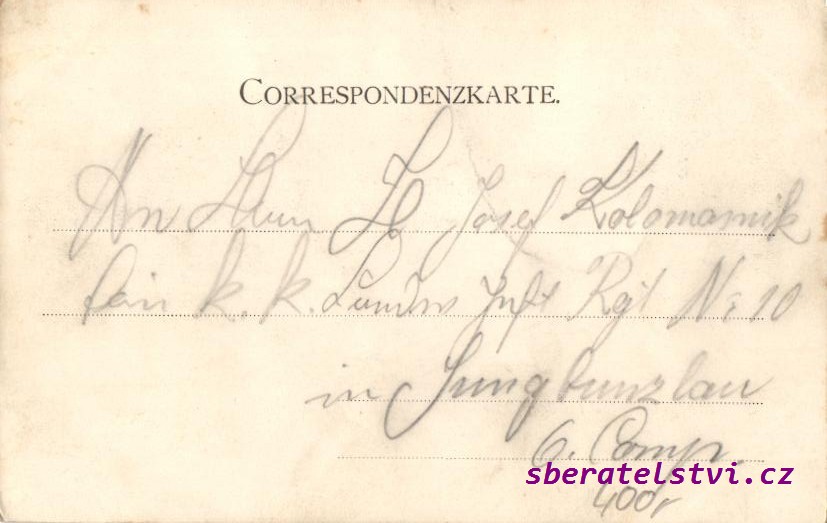 CORRESPONDENZKARTE.
An Herrn Josef Kolomasnik
k. k. Landw Inft Rgt No 10
in Jungbunzlau
6. Comp.
sberatelstvi.cz
400,